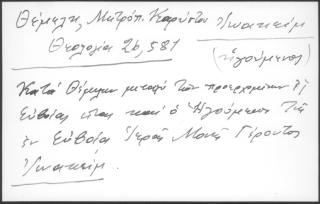 Θέμελη, Μητρόπ. Καρύστου Ἰωακείμ
Θεολογία 26, 581 (ἡγούμενος)
Κατά Θέμελην μεταξύ τῶν προερχομένων ἐξ
Εὐβοίας εἶναι καί ὁ Ἡγούμενος τῆς
ἐν Εὐβοίᾳ Ἱερᾶς Μονῆς Γέροντος
Ἰωακείμ.